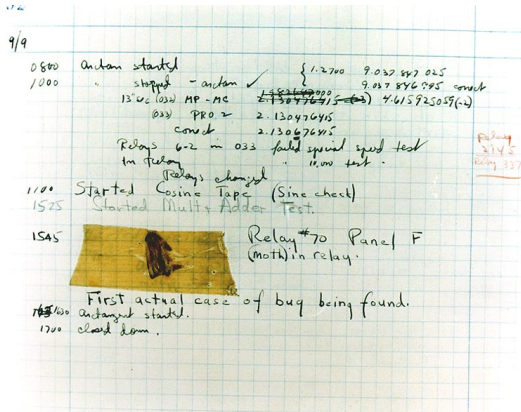 9/9
0800 Antan started
1000 " stopped - antan ✓ { 1.2700 9.037 847 025
9.037 846 995 correct
13"uc (032) MP - MC 4.615925059(-2)
(033) PRO 2 2.130476415
correct 2.130676415
Relays 6-2 in 033 failed special speed test
In Relay " 10,000 test.
Relay 3145
Relay 3370
Relays changed
1100 Started Cosine Tape (Sine check)
1525 Started Multi Adder Test.
1545 Relay #70 Panel F
(moth) in relay.
First actual case of bug being found.
1630 antangent started.
1700 closed down.